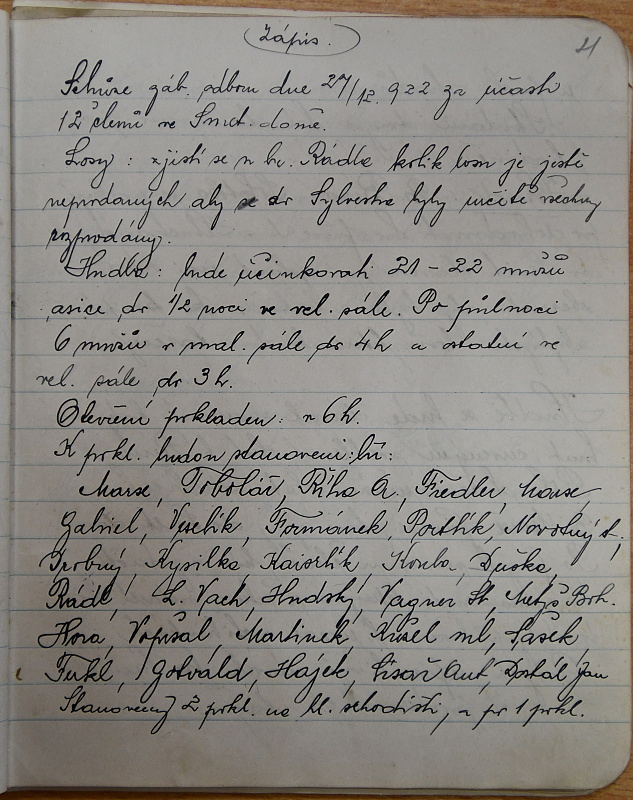 Zápis.
21
Schůze záb. odboru dne 27/12. 922 za účasti
12 členů ve Smet. domě.
Losy: zjistí se u br. Rádla kolik losů je ještě
neprodaných aby se do Sylvestra byly určitě všechny
rozprodány.
Hudba: bude účinkovati 21 – 22 mužů
asice do 1/2 noci ve vel. sále. Po půlnoci
6 mužů v mal. sále do 4 h a ostatní ve
vel. sále do 3 h.
Otevření pokladen: v 6 h.
K pokl. budou stanoveni: bří:
Tobolář, Říha A., Fiedler,
Gabriel, Veselík, Formánek, Novotný
Drobný, Kysilka Kaiserlík, Kouba, Duška,
Rádl, L. Vach, Hudský, Vagner St,
Hora, Vopršal, Martinek, Küsel ml, Šašek
Ferkl, Gotvald, Hájek, Císař Ant, Dostál Jan
2 pokl. na hl. schodišti, a po 1 pokl.